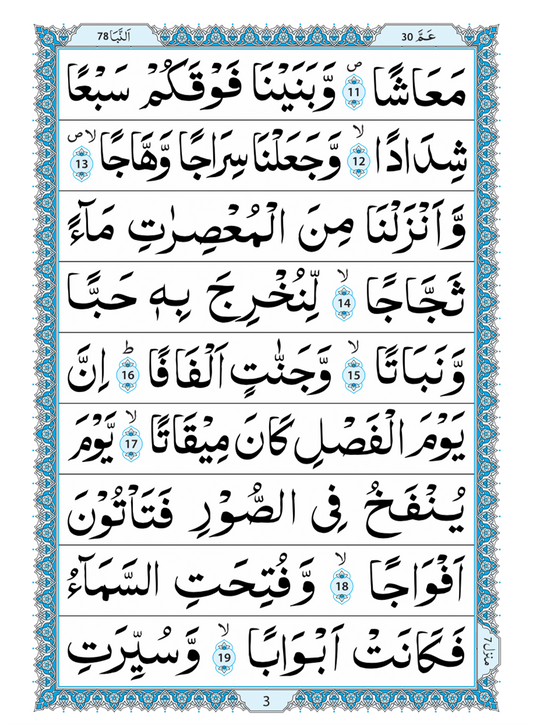 عَمَّ 30
اَلنَّبَا 78
مَعَاشًا ۪ۙ 11 وَّبَنَيْنَا فَوْقَكُمْ سَبْعًا
شِدَادًا ۙ 12 وَّجَعَلْنَا سِرَاجًا وَّهَّاجًا ۪ۙ 13
وَّاَنْزَلْنَا مِنَ الْمُعْصِرٰتِ مَآءً
ثَجَّاجًا ۙ 14 لِّنُخْرِجَ بِهٖ حَبًّا
وَّنَبَاتًا ۙ 15 وَّجَنّٰتٍ اَلْفَافًا ؕ 16 اِنَّ
يَوْمَ الْفَصْلِ كَانَ مِيْقَاتًا ۙ 17 يَّوْمَ
يُنْفَخُ فِى الصُّوْرِ فَتَاْتُوْنَ
اَفْوَاجًا ۙ 18 وَّفُتِحَتِ السَّمَآءُ
فَكَانَتْ اَبْوَابًا ۙ 19 وَّسُيِّرَتِ
منزل 7
3